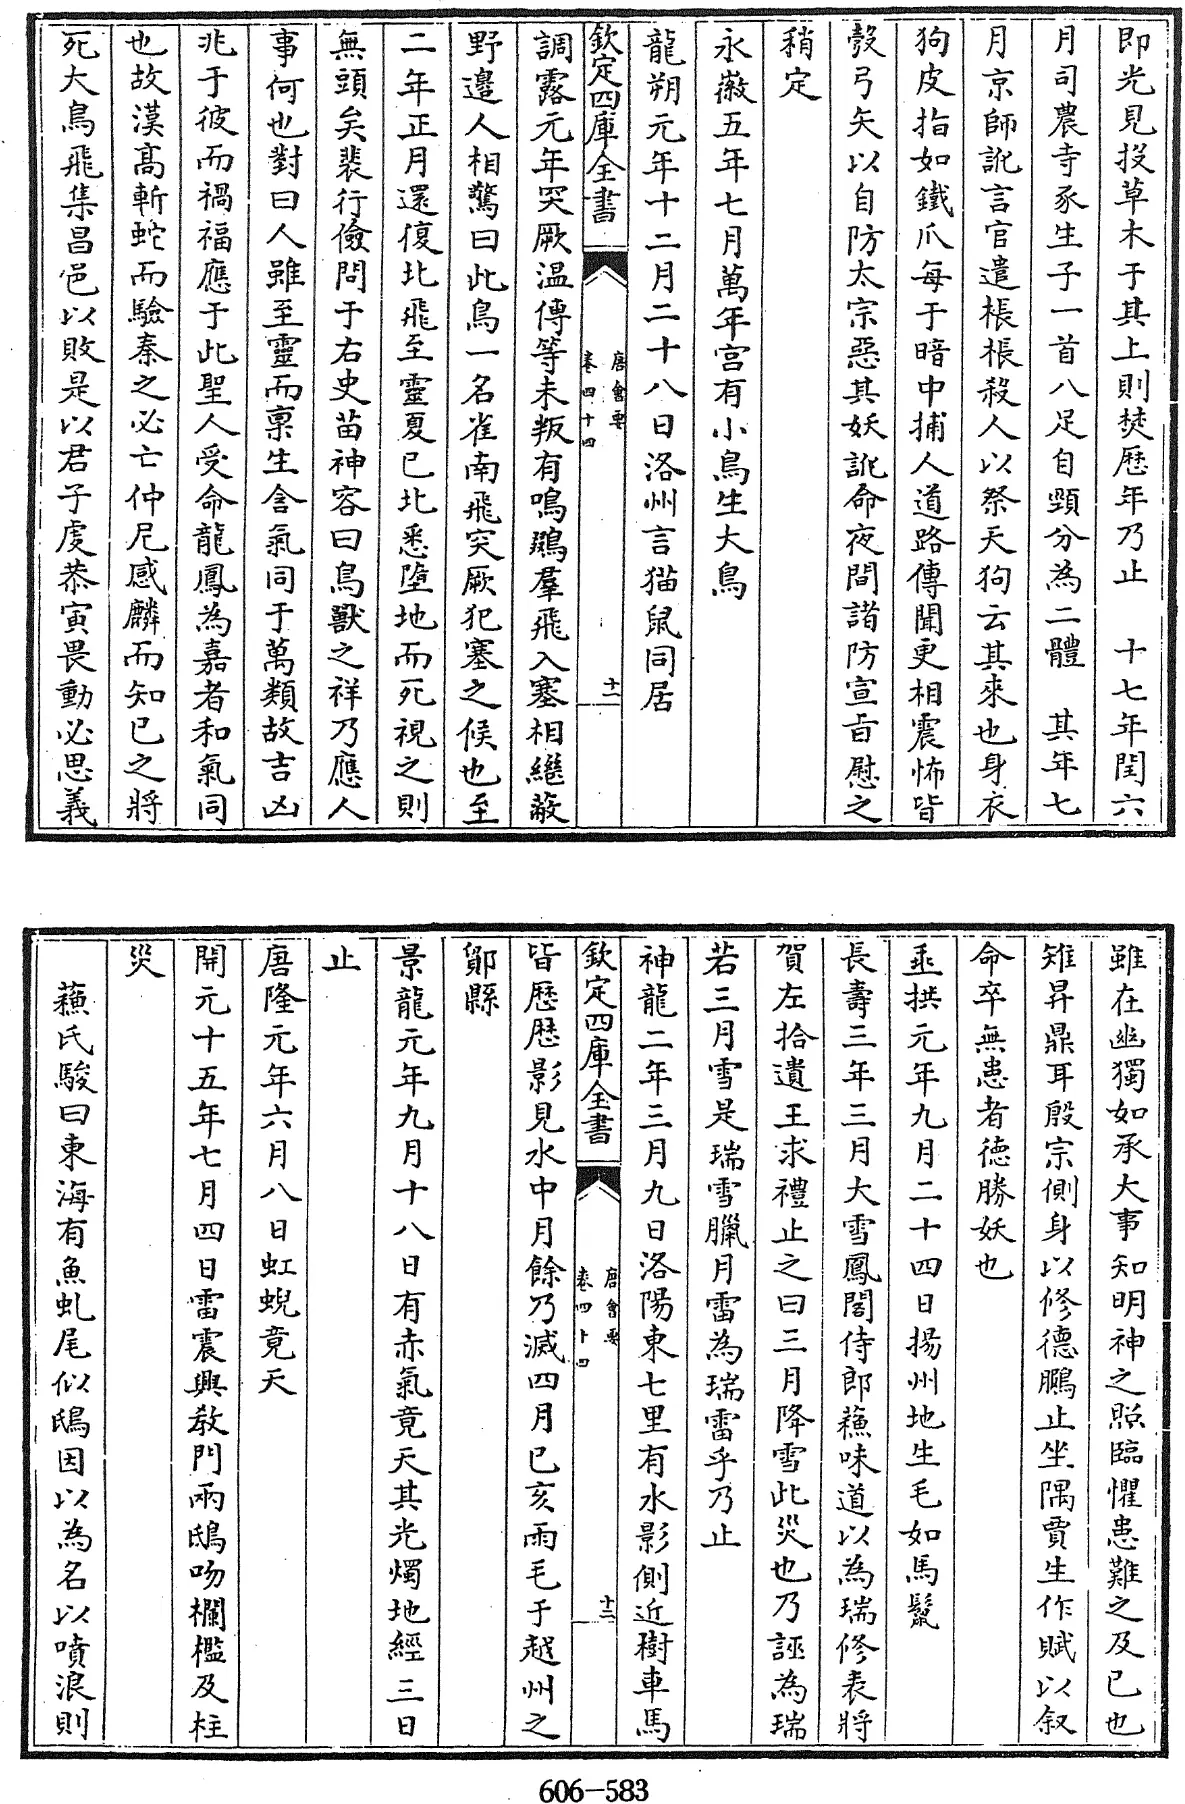 即光見投草木于其上則焚厯年乃止　十七年閏六
月司農寺豕生子一首八足自頸分為二體　其年七
月京師訛言官遣棖棖殺人以祭天狗云其來也身衣
狗皮指如鐵爪每于暗中捕人道路傳聞更相震怖皆
彀弓矢以自防太宗惡其妖訛命夜間諸防宣旨慰之
稍定
永徽五年七月萬年宫有小鳥生大鳥
龍朔元年十二月二十八日洛州言猫鼠同居
欽定四庫全書
唐會要
卷四十四
十二
調露元年突厥温傅等未叛有鳴鵽羣飛入塞相繼蔽
野邉人相驚曰此鳥一名雀南飛突厥犯塞之候也至
二年正月還復北飛至靈夏已北悉墮地而死視之則
無頭矣裴行儉問于右史苗神容曰鳥獸之祥乃應人
事何也對曰人雖至靈而稟生含氣同于萬類故吉凶
兆于彼而禍福應于此聖人受命龍鳳為嘉者和氣同
也故漢髙斬蛇而驗秦之必亡仲尼感麟而知已之將
死大鳥飛集昌邑以敗是以君子虔恭寅畏動必思義
雖在幽獨如承大事知明神之照臨懼患難之及已也
雉昇鼎耳殷宗側身以修德鵩止坐隅賈生作賦以叙
命卒無患者德勝妖也
垂拱元年九月二十四日揚州地生毛如馬鬛
長壽三年三月大雪鳳閣侍郎蘇味道以為瑞修表將
賀左拾遺王求禮止之曰三月降雪此災也乃誣為瑞
若三月雪是瑞雪臘月雷為瑞雷乎乃止
神龍二年三月九日洛陽東七里有水影側近樹車馬
欽定四庫全書
唐會要
卷四十四
十三
皆歴歴影見水中月餘乃滅四月已亥雨毛于越州之
鄮縣
景龍元年九月十八日有赤氣竟天其光燭地經三日
止
唐隆元年六月八日虹蜺竟天
開元十五年七月四日雷震興教門兩鴟吻欄檻及柱
災
蘇氏駿曰東海有魚虬尾似鴟因以為名以噴浪則
606—583